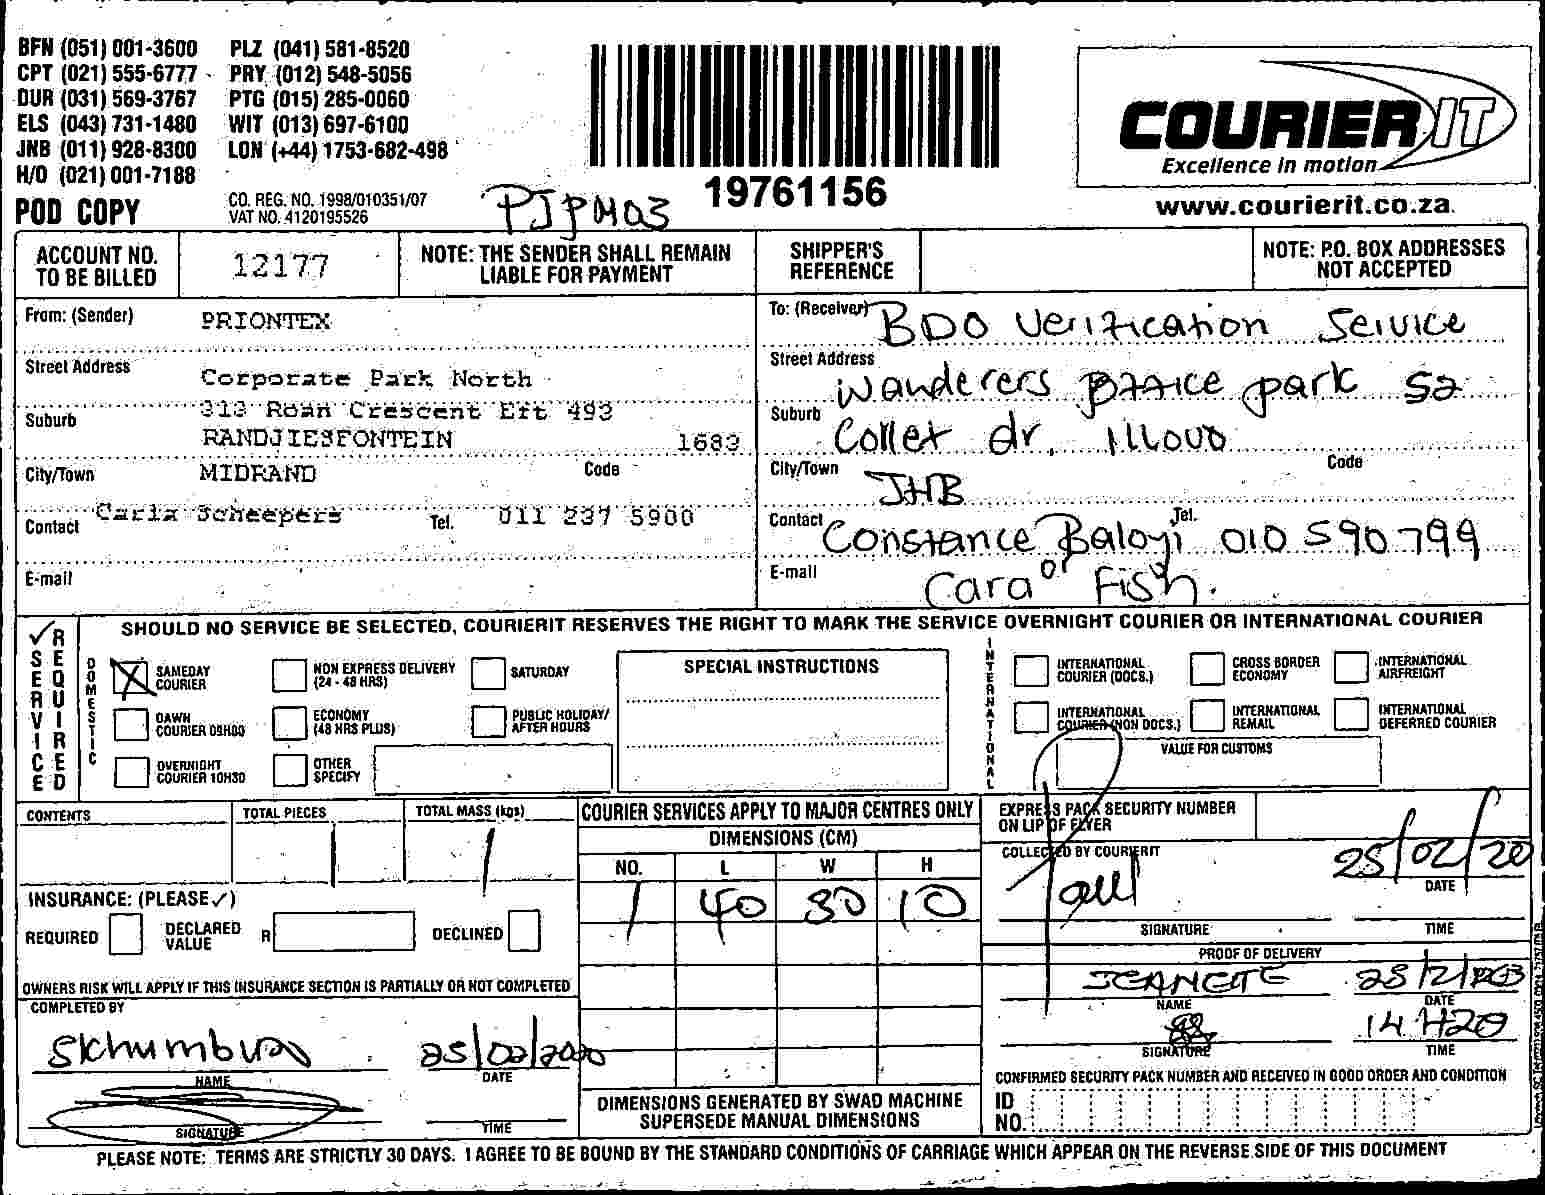 BFN (051) 001-3600 PLZ (041) 581-8520
CPT (021) 555-6777 PRY (012) 548-5056
DUR (031) 569-3767 PTG (015) 285-0060
ELS (043) 731-1480 WIT (013) 697-6100
JNB (011) 928-8300 LON (+44) 1753-682-498
H/O (021) 001-7188
POD COPY
CO. REG. NO. 1998/010351/07
VAT NO. 4120195526
PJPM03
19761156
COURIER IT
Excellence in motion
www.courierit.co.za.
ACCOUNT NO. TO BE BILLED
12177
NOTE: THE SENDER SHALL REMAIN LIABLE FOR PAYMENT
SHIPPER'S REFERENCE
NOTE: P.O. BOX ADDRESSES NOT ACCEPTED
From: (Sender) PRIONTEX
Street Address Corporate Park North
Suburb 313 Roan Crescent Ext 493
RANDJIESFONTEIN 1683
City/Town MIDRAND Code
Contact Carla Scheepers Tel. 011 237 5900
E-mail
To: (Receiver) BDO Verification Service
Street Address Wanderers Office park 52
Suburb Corlet dr, Illovo
City/Town JHB Code
Contact Constance Baloyi Tel. 010 590 799
E-mail Cara or Fish.
SERVICE REQUIRED
SHOULD NO SERVICE BE SELECTED, COURIERIT RESERVES THE RIGHT TO MARK THE SERVICE OVERNIGHT COURIER OR INTERNATIONAL COURIER
DOMESTIC
SAMEDAY COURIER
NON EXPRESS DELIVERY (24 - 48 HRS)
SATURDAY
DAWN COURIER 09H00
ECONOMY (48 HRS PLUS)
PUBLIC HOLIDAY/ AFTER HOURS
OVERNIGHT COURIER 10H30
OTHER SPECIFY
SPECIAL INSTRUCTIONS
INTERNATIONAL
INTERNATIONAL COURIER (DOCS.)
CROSS BORDER ECONOMY
INTERNATIONAL AIRFREIGHT
INTERNATIONAL COURIER (NON DOCS.)
INTERNATIONAL REMAIL
INTERNATIONAL DEFERRED COURIER
VALUE FOR CUSTOMS
CONTENTS
TOTAL PIECES 1
TOTAL MASS (kgs) 1
INSURANCE: (PLEASE ✓)
REQUIRED DECLARED VALUE R DECLINED
OWNERS RISK WILL APPLY IF THIS INSURANCE SECTION IS PARTIALLY OR NOT COMPLETED
COMPLETED BY
25/02/2020
NAME DATE
SIGNATURE TIME
COURIER SERVICES APPLY TO MAJOR CENTRES ONLY
DIMENSIONS (CM)
NO. L W H
1 40 30 10
DIMENSIONS GENERATED BY SWAD MACHINE SUPERSEDE MANUAL DIMENSIONS
EXPRESS PACK SECURITY NUMBER ON LIP OF FLYER
COLLECTED BY COURIERIT
Paul 25/02/20
DATE
SIGNATURE TIME
PROOF OF DELIVERY
JEANETTE
NAME DATE
14H20
SIGNATURE TIME
CONFIRMED SECURITY PACK NUMBER AND RECEIVED IN GOOD ORDER AND CONDITION
ID NO.
PLEASE NOTE: TERMS ARE STRICTLY 30 DAYS. I AGREE TO BE BOUND BY THE STANDARD CONDITIONS OF CARRIAGE WHICH APPEAR ON THE REVERSE SIDE OF THIS DOCUMENT